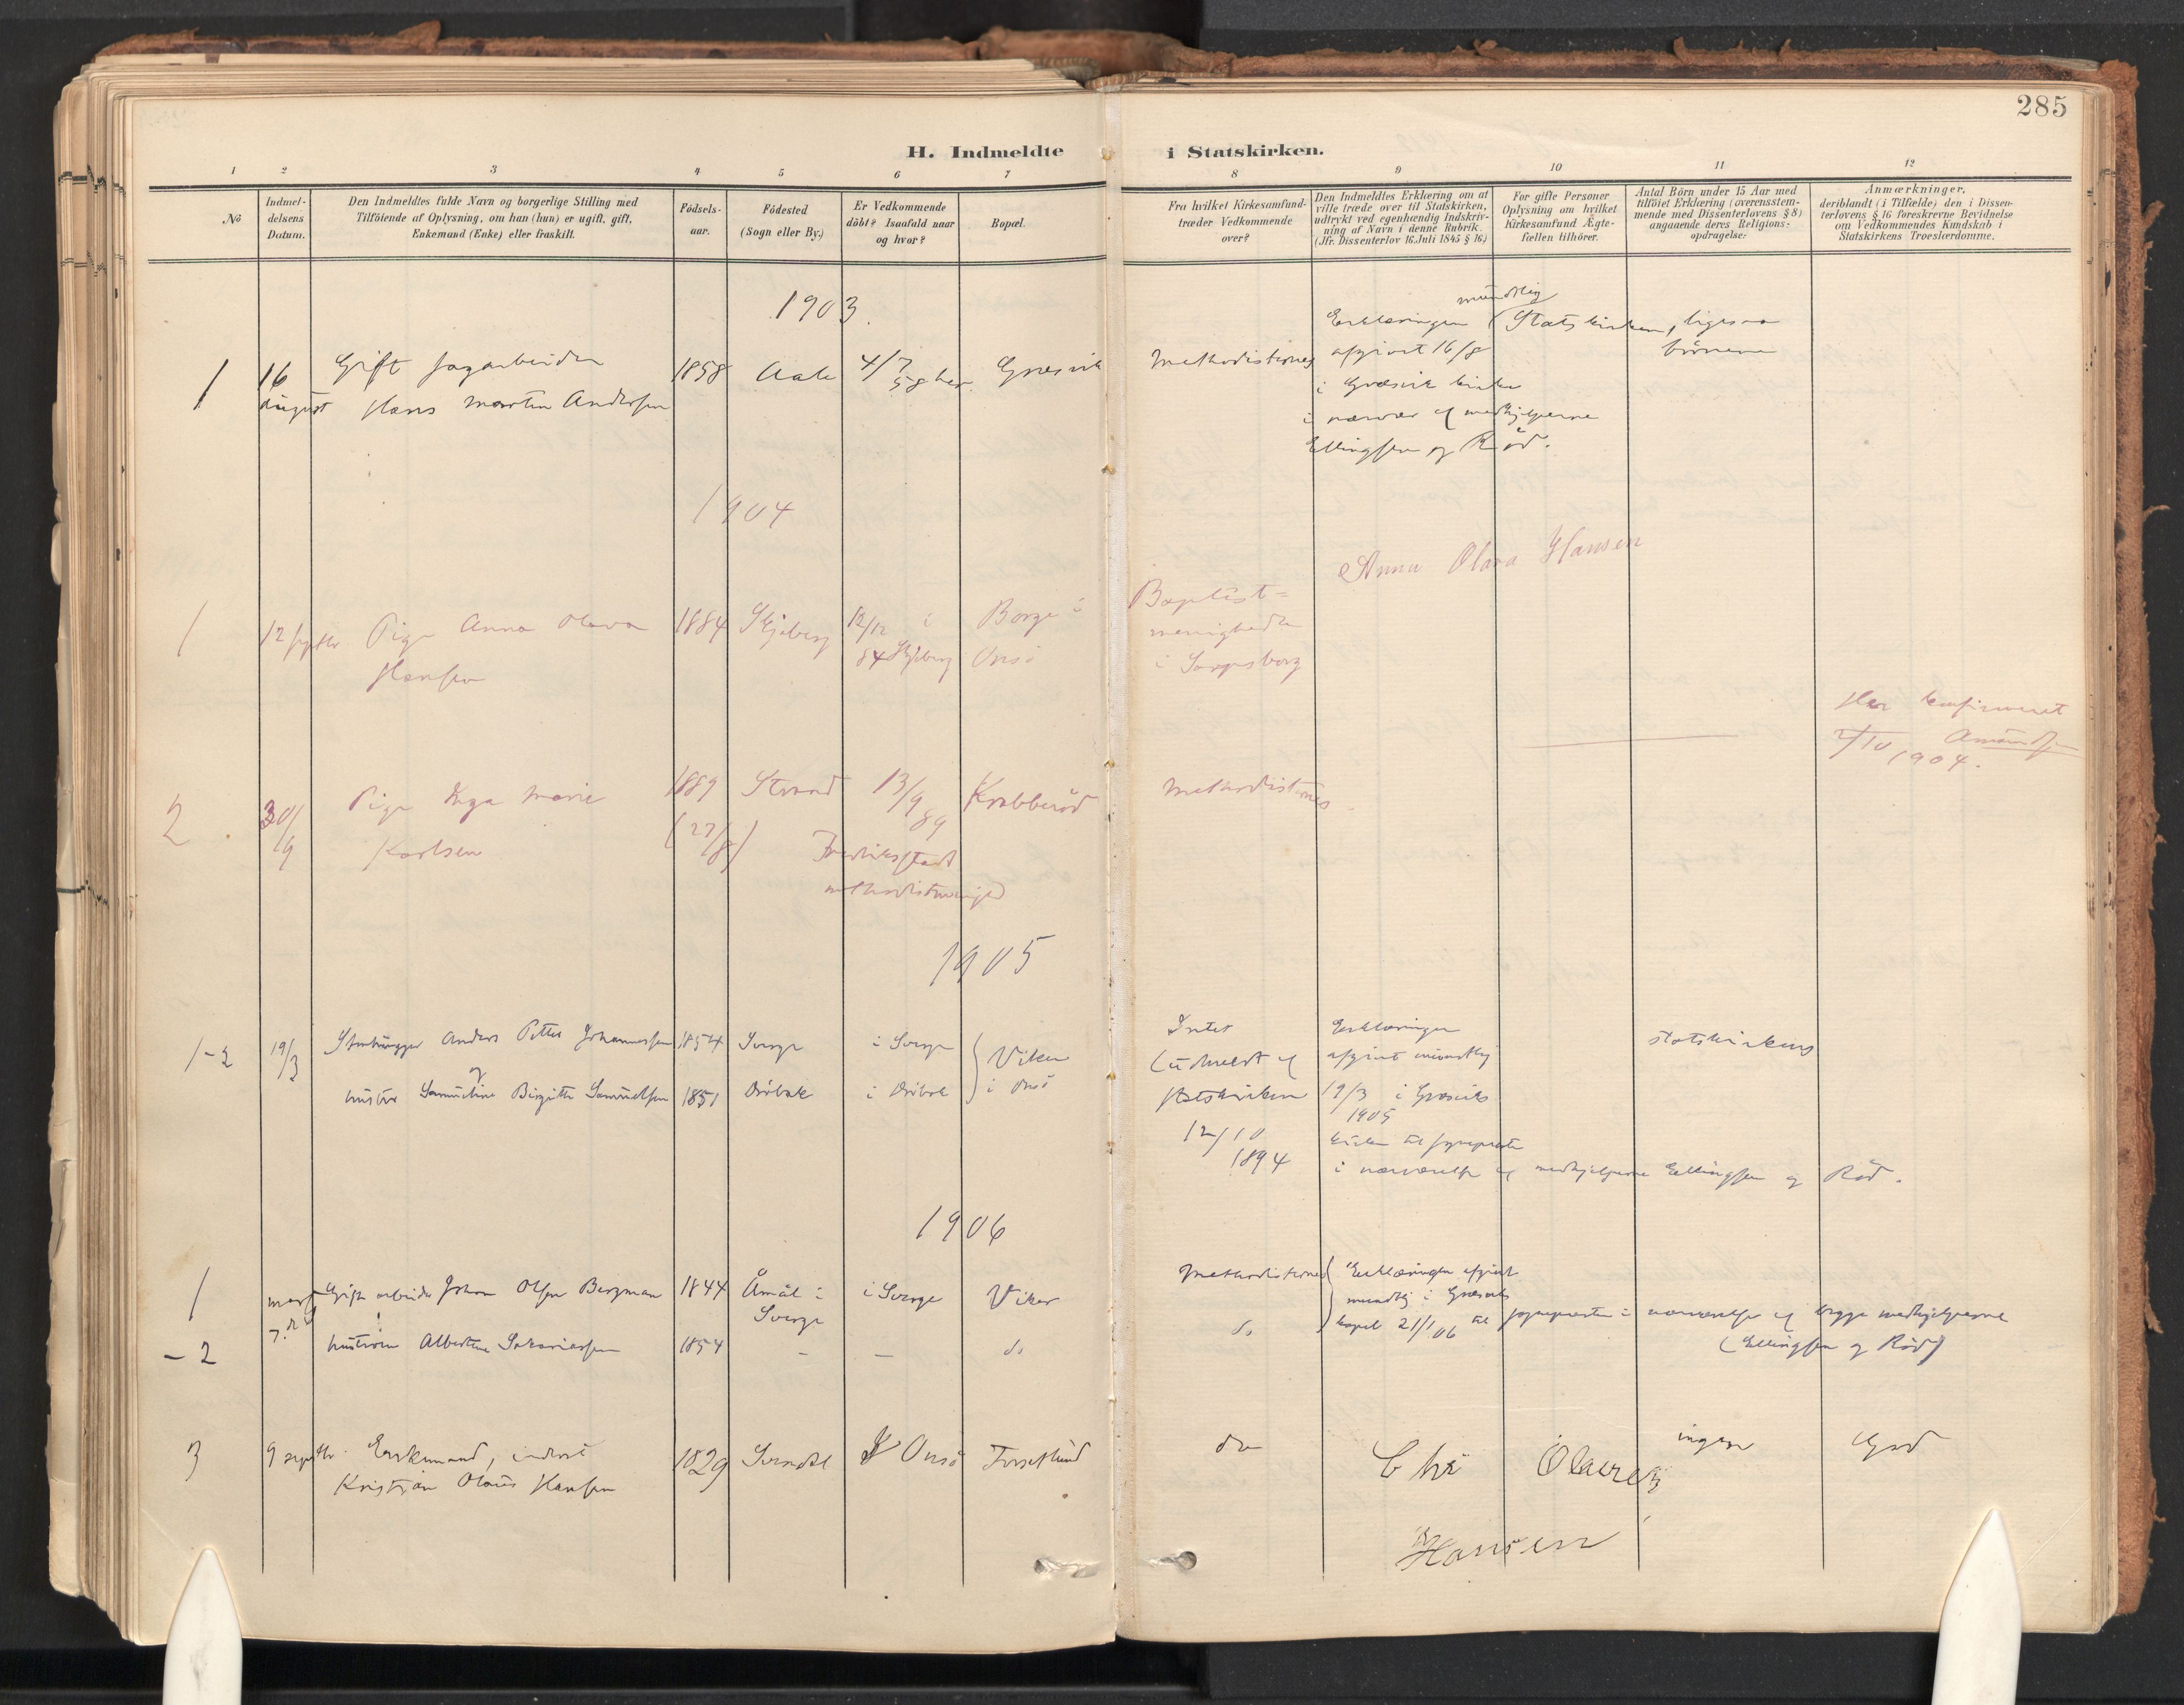 285
H. Indmeldte i Statskirken.
1 2 3 4 5 6 7 8 9 10 11 12
No
Indmel-
delsens
Datum.
Den Indmeldtes fulde Navn og borgerlige Stilling med
Tilföiende af Oplysning, om han (hun) er ugift, gift,
Enkemand (Enke) eller fraskilt.
Födsels-
aar.
Födested
(Sogn eller By.)
Er Vedkommende
döbt? Isaafald naar
og hvor?
Bopæl.
Fra hvilket Kirkesamfund
træder Vedkommende
over?
Den Indmeldtes Erklæring om at
ville træde over til Statskirken,
udtrykt ved egenhændig Indskriv-
ning af Navn i denne Rubrik.
(Jfr. Dissenterlov 16. Juli 1845 § 16)
For gifte Personer
Oplysning om hvilket
Kirkesamfund Ægte-
fællen tilhörer.
Antal Börn under 15 Aar med
tilföiet Erklæring (overensstem-
mende med Dissenterlovens § 8)
angaaende deres Religions-
opdragelse:
Anmærkninger,
deriblandt (i Tilfælde) den i Dissen-
terlovens § 16 foreskrevne Bevidnelse
om Vedkommendes Kundskab i
Statskirkens Troeslærdomme.
1903.
1
16
august
Gift sagarbeider
Hans Martin Andersen
1858
4/7
58 her.
Græsvik
Methodisternes
Erklæringen mundtlig
afgivet 16/8
i Græsvik kirke
i nærvær af medhjelperne
Ellingsen og Röd.
Statskirken,
ligesaa
börnene
1904
1
12 septbr
Pige Anna Olava
Hansen
1884
Skjeberg
12/12 i
84 Skjeberg
Borge i
Onsö
Baptist=
menigheden
i Sarpsborg
Anna Olava Hansen
2
30/9
Pige Inga Marie
Karlsen
1889
(27/8)
Strand
13/9
89
Fredriksstad
methodistmenighed
Krabberöd
Methodisternes
Her konfirmeret
2/10 1904.
Amundsen
1905
1-2
19/3
Stenhugger Anders Petter Johannessen
og
hustru Samueline Birgitte Samuelsen
1854
1851
Sverge
Dröbak
i Sverge
i Dröbak
Viker
i Onsö
Intet
(udmeldt af
statskirken
12/10
1894
Erklæringen
afgivet mundtlig
19/3 i Græsviks
1905
kirke til sogneprsten
i nærværelse af medhjelperne Ellingsen og Röd.
statskirkens
1906
1
marts
7.de
Gift arbeider Johan Olsen Bergman
1844
Åmål i
Sverge
i Sverge
Viker
Methodisternes
Erklæringen afgivet
mundtlig i Græsviks
kapel 21/1 06 til sognepresten i nærværelse af begge medhjelperne
(Ellingsen og Röd)
- 2
hustruen Albertine Sakariassen
1854
-
-
do
do
3
9 septbr
Enkemand, inderst
Kristian Olaus Hansen
1829
Onsö
do
Chr Olaus
Hansen
ingen
God